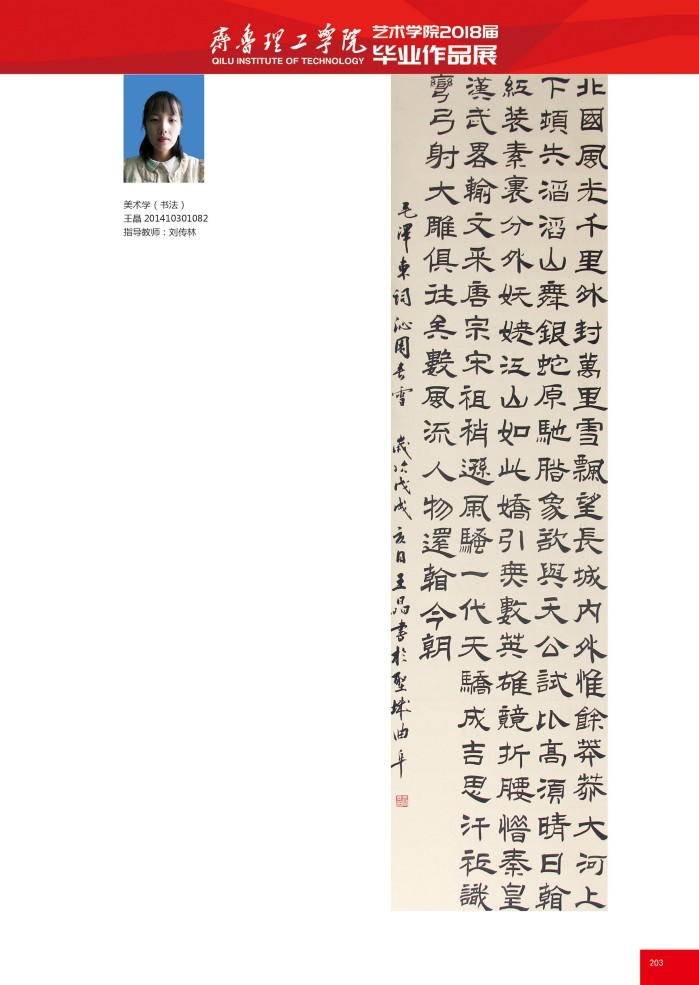 齊魯理工學院
QILU INSTITUTE OF TECHNOLOGY
艺术学院2018届
毕业作品展
美术学（书法）
王晶 201410301082
指导教师：刘传林
北國風光千里冰封萬里雪飄望長城内外惟餘莽莽大河上
下頓失滔滔山舞銀蛇原馳腊象欲與天公試比高須晴日看
紅装素裹分外妖嬈江山如此嬌引無數英雄競折腰惜秦皇
漢武畧輸文采唐宗宋祖稍遜風騷一代天驕成吉思汗祇識
彎弓射大雕俱往矣數風流人物還看今朝
毛澤東詞沁園春雪 歲次戊戌亥日王晶書於聖城曲阜
203